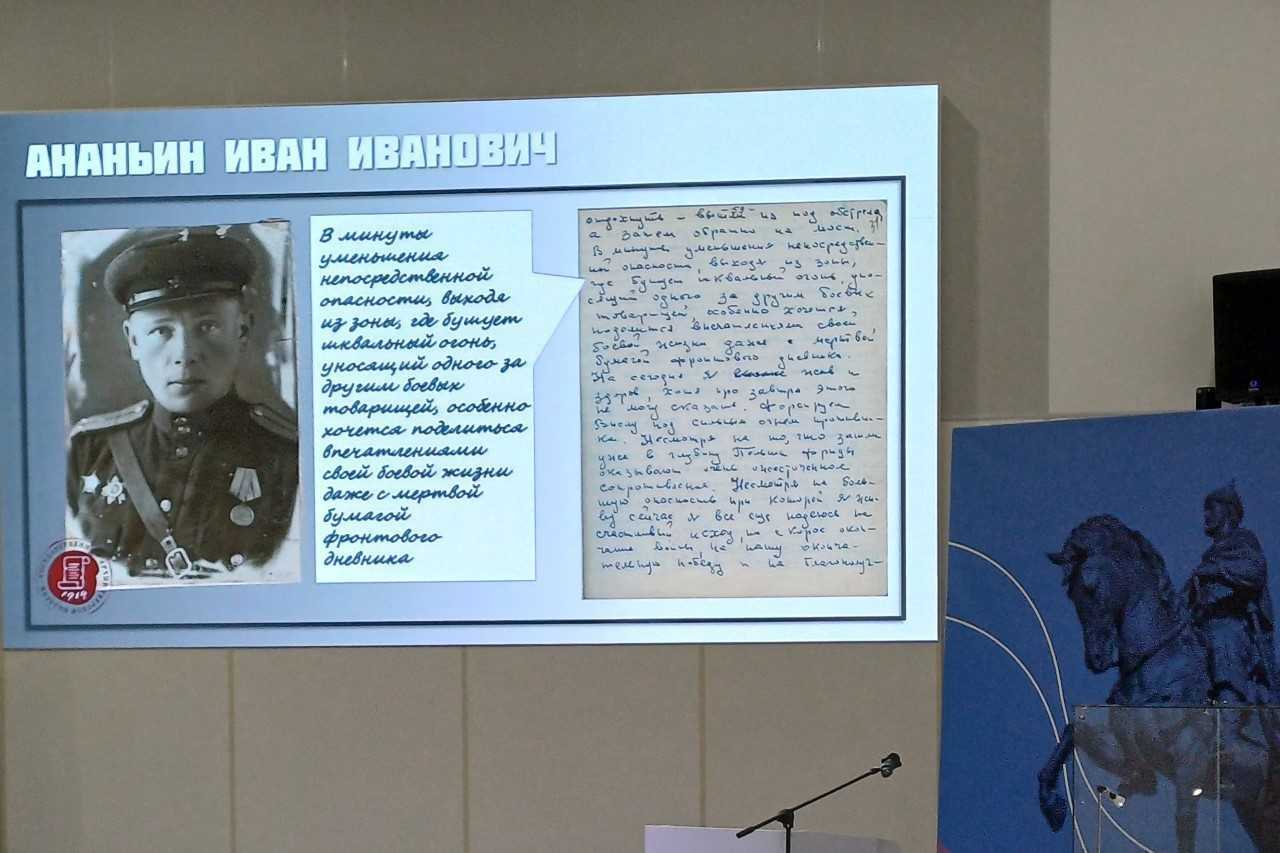 АНАНЬИН ИВАН ИВАНОВИЧ
В минуты
уменьшения
непосредственной
опасности, выходя
из зоны, где бушует
шквальный огонь,
уносящий одного за
другим боевых
товарищей, особенно
хочется поделиться
впечатлениями
своей боевой жизни
даже с мертвой
бумагой
фронтового
дневника
1919
отдохнуть - из под обстрела
а затем обратно на мост.
В минуты уменьшения непосредствен-
ной опасности, выходя из зоны,
где бушует шквальный огонь, уно-
сящий одного за другим боевых
товарищей, особенно хочется,
поделится впечатлениями своей
боевой жизни даже с мертвой
бумагой фронтового дневника.
На сегодня я жив и
здоров, хотя про завтра этого
не могу сказать. Форсируем
Вислу под сильным огнем противни-
ка. Несмотря на то, что заним
уже в глубину Польши фрицы
оказывают очень ожесточенное
сопротивление. Несмотря на боль-
шую опасность при которой я жи-
ву сейчас я все еще надеюсь на
счастливый исход, на скорое окон-
чание войны, на нашу оконча-
тельную победу и на благополуч-